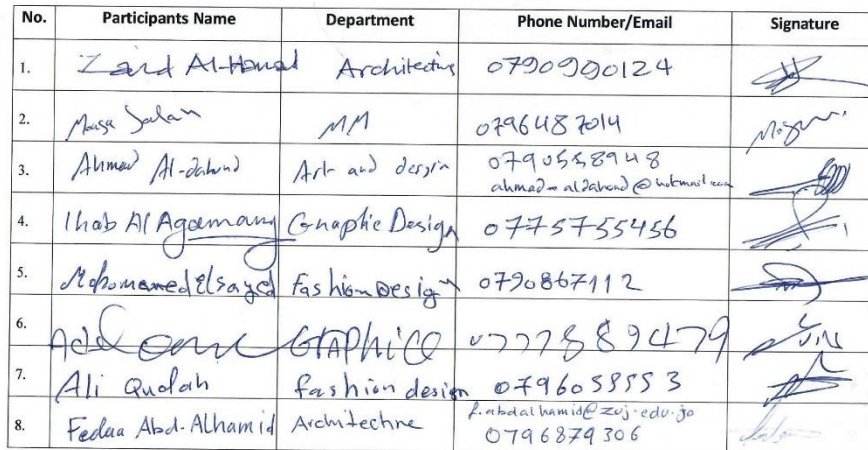 No. Participants Name Department Phone Number/Email Signature
1. Zaid Al-Hamad Architecture 0790900124
2. Mousa Salah MM 0796487014
3. Ahmad Al-dahoud Art and design 0790558948
ahmad-aldahoud@hotmail.com
4. Ihab Al Agamany Graphic Design 0775755456
5. Mohomamed Elsayed Fashion Design 0790867112
6. Adel GRAPHICO 0777889479
7. Ali Qudah fashion design 0796055553
8. Fedaa Abd-Alhamid Architechne f.abdalhamid@zuj.edu.jo
0796879306